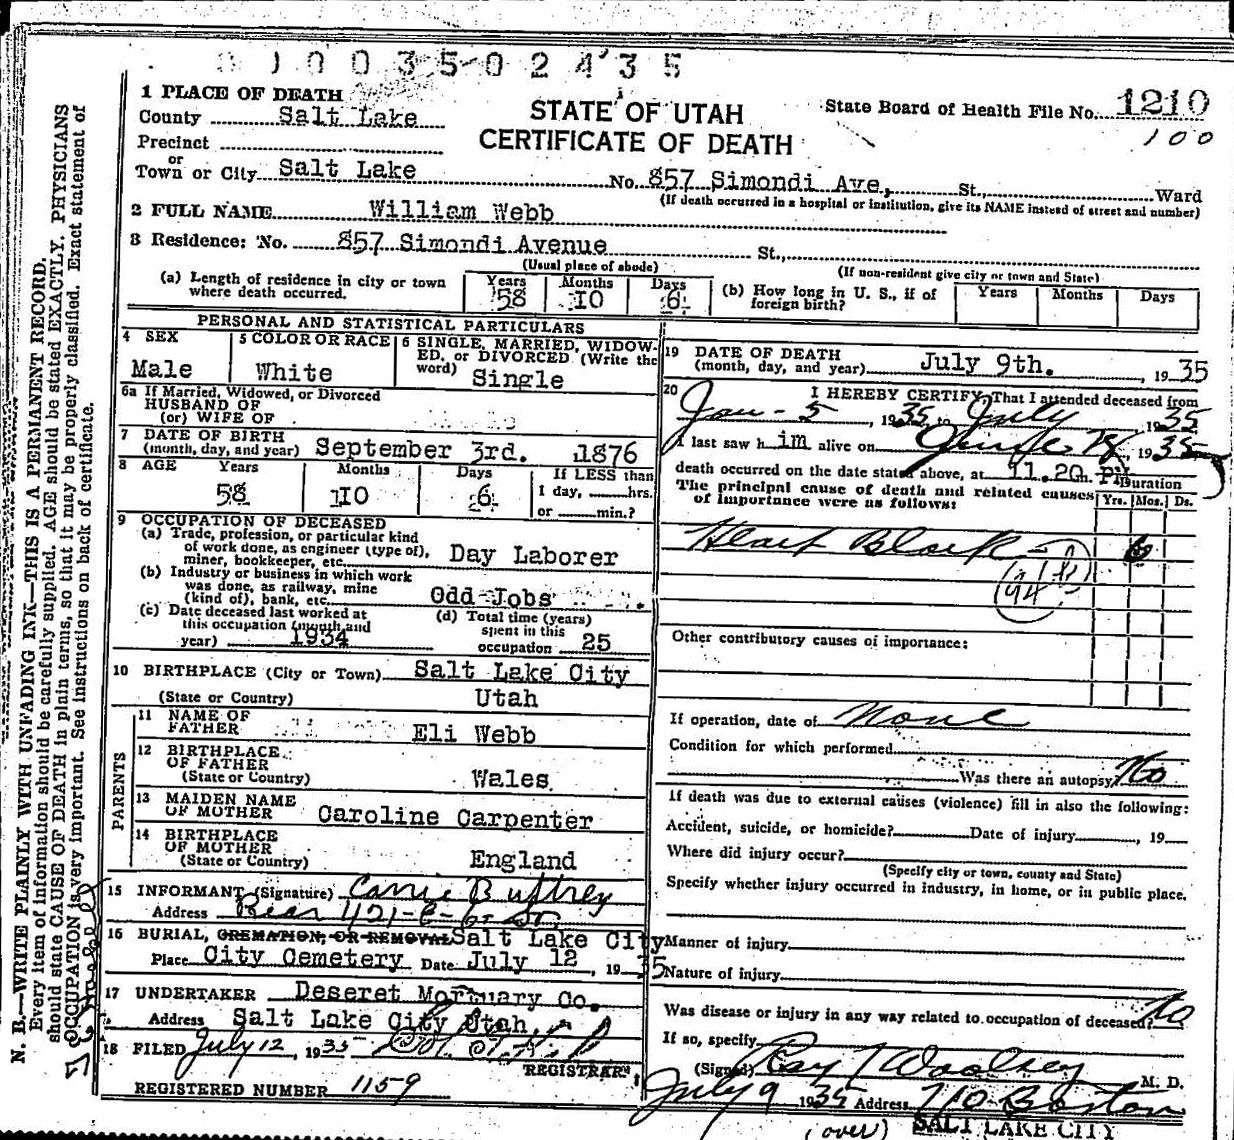 01003502435
1 PLACE OF DEATH
STATE OF UTAH
CERTIFICATE OF DEATH
State Board of Health File No. 1210
100
County Salt Lake
Precinct
or
Town or City Salt Lake No. 857 Simondi Ave, St., Ward
(If death occurred in a hospital or institution, give its NAME instead of street and number)
2 FULL NAME William Webb
3 Residence: No. 857 Simondi Avenue St.,
(Usual place of abode) (If non-resident give city or town and State)
(a) Length of residence in city or town where death occurred. Years 58 Months 10 Days 6
(b) How long in U. S., if of foreign birth? Years Months Days
PERSONAL AND STATISTICAL PARTICULARS
4 SEX Male
5 COLOR OR RACE White
6 SINGLE, MARRIED, WIDOWED, or DIVORCED (Write the word) Single
6a If Married, Widowed, or Divorced
HUSBAND OF
(or) WIFE OF
7 DATE OF BIRTH
(month, day, and year) September 3rd. 1876
8 AGE Years 58 Months 10 Days 6 If LESS than
1 day, hrs.
or min.?
9 OCCUPATION OF DECEASED
(a) Trade, profession, or particular kind
of work done, as engineer (type of),
miner, bookkeeper, etc. Day Laborer
(b) Industry or business in which work
was done, as railway, mine
(kind of), bank, etc. Odd Jobs
(c) Date deceased last worked at
this occupation (month and
year) 1934
(d) Total time (years)
spent in this
occupation 25
10 BIRTHPLACE (City or Town) Salt Lake City
(State or Country) Utah
PARENTS
11 NAME OF
FATHER Eli Webb
12 BIRTHPLACE
OF FATHER
(State or Country) Wales
13 MAIDEN NAME
OF MOTHER Caroline Carpenter
14 BIRTHPLACE
OF MOTHER
(State or Country) England
15 INFORMANT (Signature) Carrie Buttrey
Address Rear 421-E-6-So
16 BURIAL, CREMATION, OR REMOVAL Salt Lake City
Place City Cemetery Date July 12, 1935
17 UNDERTAKER Deseret Mortuary Co.
Address Salt Lake City Utah.
18 FILED July 12, 1935
REGISTRAR
REGISTERED NUMBER 1159
19 DATE OF DEATH
(month, day, and year) July 9th. , 1935
20 I HEREBY CERTIFY, That I attended deceased from
Jan - 5, 1935 to July 1935
I last saw him alive on June , 1935
death occurred on the date stated above, at 11.20 m. PM
Duration
The principal cause of death and related causes
of importance were as follows:
Yrs. Mos. Ds.
Heart Block - 6
94
Other contributory causes of importance:
If operation, date of None
Condition for which performed
Was there an autopsy No
If death was due to external causes (violence) fill in also the following:
Accident, suicide, or homicide? Date of injury , 19
Where did injury occur?
(Specify city or town, county and State)
Specify whether injury occurred in industry, in home, or in public place.
Manner of injury
Nature of injury
Was disease or injury in any way related to occupation of deceased? No
If so, specify
(Signed) Ray T Woolsey M. D.
July 9 1935 Address 710 Boston
(over) SALT LAKE CITY
N. B.—WRITE PLAINLY WITH UNFADING INK—THIS IS A PERMANENT RECORD.
Every item of information should be carefully supplied. AGE should be stated EXACTLY. PHYSICIANS
should state CAUSE OF DEATH in plain terms, so that it may be properly classified. Exact statement of
OCCUPATION is very important. See instructions on back of certificate.